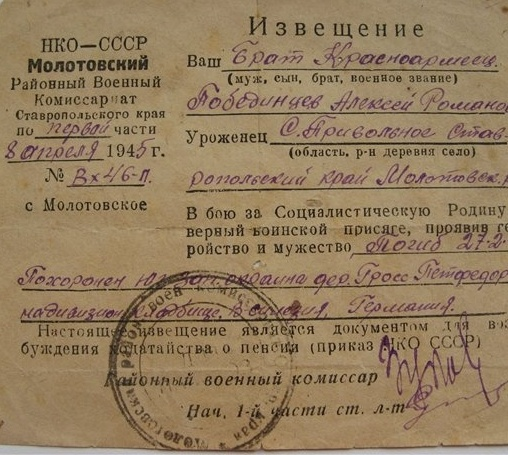 НКО—СССР
МОЛОТОВСКИЙ
Районный Военный
Комиссариат
Ставропольского края
по первой части
8 апреля 1945 г.
№ Вх46-П.
с Молотовское
Извещение
Ваш Брат Красноармеец
(муж, сын, брат, военное звание)
Побединцев Алексей Романо
Уроженец С. Привольное Став-
(область, р-н деревня село)
ропольский край Молотовск.
В бою за Социалистическую Родину
верный воинской присяге, проявив ге
ройство и мужество Погиб 27-2-
Похоронен юг. зап. окраина дер. Гросс
кладбище, Германия.
Настоящее извещение является документом для воз
буждения ходатайства о пенсии (приказ НКО СССР)
Районный военный комиссар
Нач. 1-й части ст. л-т